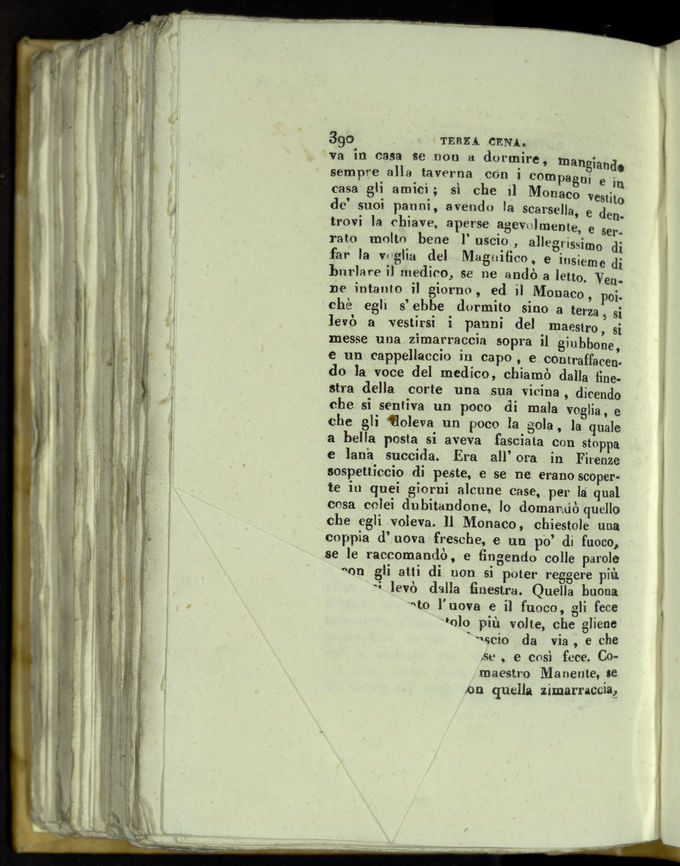 390 TERZA CENA.
va in casa se non a dormire, mangiando
sempre alla taverna con i compagni e in
casa gli amici; sì che il Monaco vestito
de' suoi panni, avendo la scarsella, e den-
trovi la chiave, aperse agevolmente, e ser-
rato molto bene l'uscio, allegrissimo di
far la voglia del Magnifico, e insieme di
burlare il medico, se ne andò a letto. Ven-
ne intanto il giorno, ed il Monaco, poi-
chè egli s'ebbe dormito sino a terza, si
levò a vestirsi i panni del maestro, si
messe una zimarraccia sopra il giubbone,
e un cappellaccio in capo, e contraffacen-
do la voce del medico, chiamò dalla fine-
stra della corte una sua vicina, dicendo
che si sentiva un poco di mala voglia, e
che gli doleva un poco la gola, la quale
a bella posta si aveva fasciata con stoppa
e lana succida. Era all'ora in Firenze
sospetticcio di peste, e se ne erano scoper-
te in quei giorni alcune case, per la qual
cosa colei dubitandone, lo domandò quello
che egli voleva. Il Monaco, chiestole una
coppia d'uova fresche, e un po' di fuoco,
se le raccomandò, e fingendo colle parole
con gli atti di non si poter reggere più
si levò dalla finestra. Quella buona
to l'uova e il fuoco, gli fece
tolo più volte, che gliene
uscio da via, e che
se, e così fece. Co-
maestro Manente, se
on quella zimarraccia,